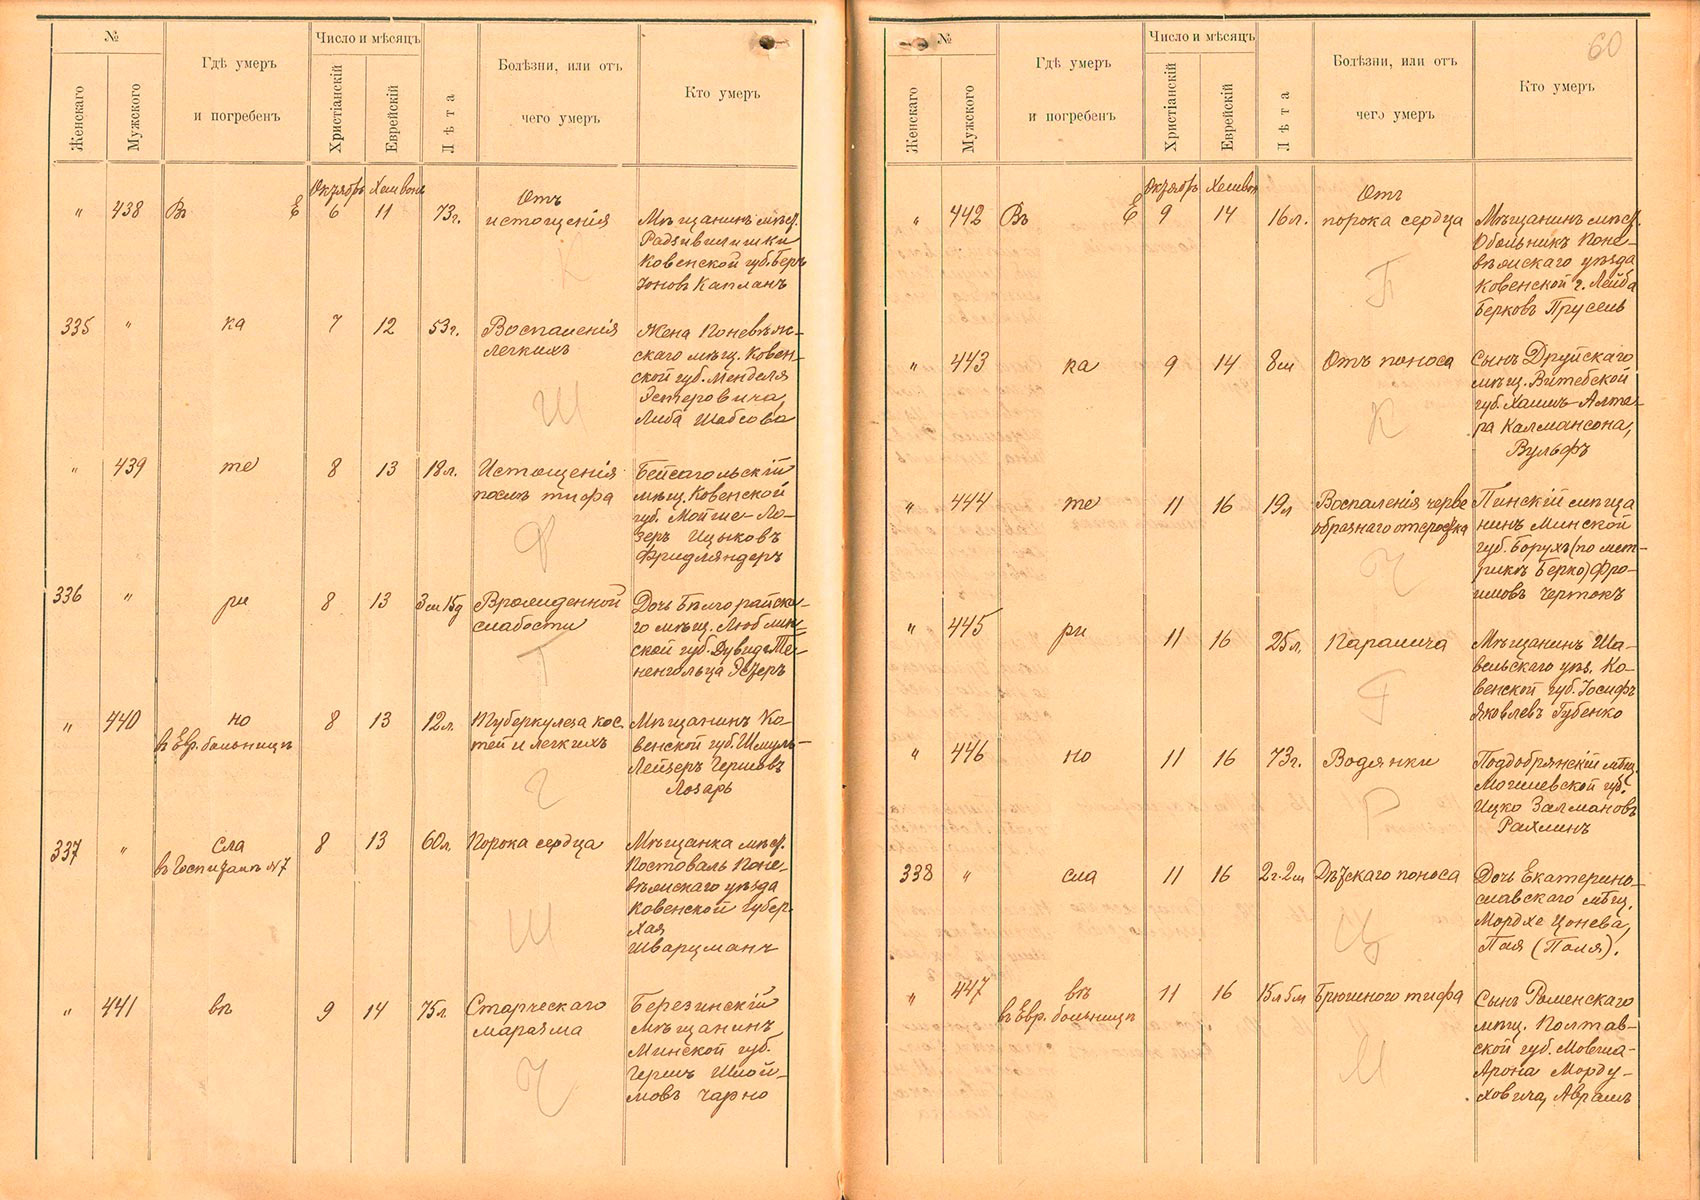 №
Число и мѣсяцъ
Женскаго
Мужского
Гдѣ умеръ
и погребенъ
Христіанскій
Еврейскій
Лѣта
Болѣзни, или отъ
чего умеръ
Кто умеръ
Октябрь Хешвонъ
" 438 Въ Е 6 11 73г.
Отъ
истощенія
Мѣщанинъ мѣст.
Радзивилишки
Ковенской губ. Беръ
Іоновъ Капланъ
К
335 " ка 7 12 53г.
Воспаленія
легкихъ
Жена Поневѣж-
скаго мѣщ. Ковен-
ской губ. Менделя
Эстеровича,
Либа Шабсова
Ш
" 439 те 8 13 18л.
Истощенія
послѣ тифа
Бейсагольскій
мѣщ. Ковенской
губ. Мойше-Ло-
зеръ Ицыковъ
Фридляндеръ
Ф
336 " ри 8 13 3м 15д
Врожденной
слабости
Дочь Бѣлгорайска-
го мѣщ. Люблин-
ской губ. Дувидъ Те-
ненгольца Эстеръ
Т
" 440 но 8 13 12л.
въ Евр. больницѣ
Туберкулеза кос-
тей и легкихъ
Мѣщанинъ Ко-
венской губ. Шмуль-
Лейзеръ Гершовъ
Лозарь
337 " сла 8 13 60л.
въ Госпиталѣ №7
Порока сердца
Мѣщанка мѣст.
Постоваль Поне-
вѣжскаго уѣзда
Ковенской губер.
Хая
Шварцманъ
Ш
" 441 въ 9 14 75л.
Старческаго
маразма
Березинскій
мѣщанинъ
Минской губ.
Гершъ Шлой-
мовъ Чарно
Ч
60
№
Число и мѣсяцъ
Женскаго
Мужского
Гдѣ умеръ
и погребенъ
Христіанскій
Еврейскій
Лѣта
Болѣзни, или отъ
чего умеръ
Кто умеръ
Октябрь Хешвон
" 442 Въ Е 9 14 16л.
Отъ
порока сердца
Мѣщанинъ мѣст.
Обольникъ Поне-
вѣжскаго уѣзда
Ковенской г. Лейба
Берковъ Прусель
П
" 443 ка 9 14 8м
Отъ поноса
Сынъ Друйскаго
мѣщ. Витебской
губ. Хаимъ-Алте-
ра Калмансона,
Вульфъ
К
" 444 те 11 16 19л
Воспаленія черве
образнаго отростка
Пинскій мѣща
нинъ Минской
губ. Борухъ (по мет-
рикѣ Берко) Фро-
имовъ Чертокъ
Ч
" 445 ри 11 16 25л.
Паралича
Мѣщанинъ Ша-
вельскаго уѣз. Ко-
венской губ. Іосифъ
Яковлевъ Губенко
Г
" 446 но 11 16 73г.
Водянки
Поддобрянскій мѣщ.
Могилевской губ.
Ицко Залмановъ
Рахлинъ
Р
338 " сла 11 16 2г. 2м
Дѣтскаго поноса
Дочь Екатерино-
славскаго мѣщ.
Мордхе Цонева,
Пая (Поля).
Ц
" 447 въ 11 16 15л 5м
въ Евр. больницѣ
Брюшного тифа
Сынъ Роменскаго
мѣщ. Полтав-
ской губ. Мовша-
Арона Морду-
ховича, Аврамъ
М